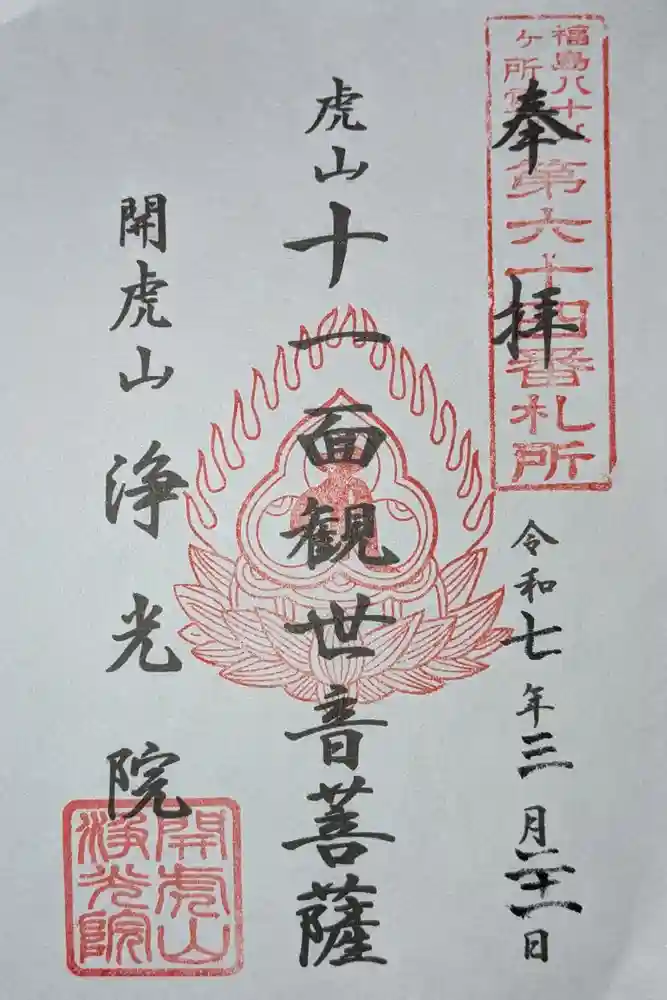 福島八十八
ヶ所
第六十四番札所
奉拝
令和七年三月二十一日
虎山十一面観世音菩薩
開虎山浄光院
開虎山
浄光院